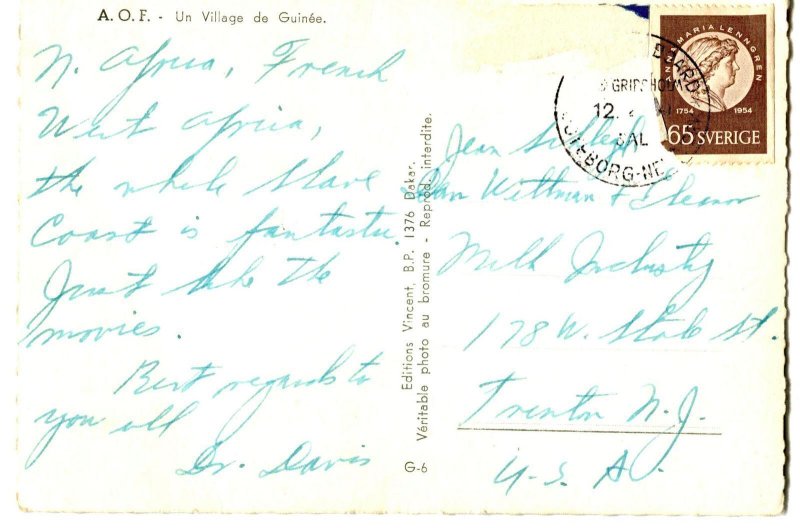 A. O. F. - Un Village de Guinée.
N. Africa, French
West Africa,
the whole Slave
Coast is fantastic.
Just like the
movies.
Best regards to
you all
Dr. Davis
Editions Vincent, B.P. 1376 Dakar.
Véritable photo au bromure - Reprod. interdite.
G-6
ANNA MARIA LENNGREN
1754 1954
65 SVERIGE
GRIPSHOLM
12.
GÖTEBORG-NE
Jean
Wittman & Eleanor
Milk Industry
178 W. State St.
Trenton N. J.
U. S. A.